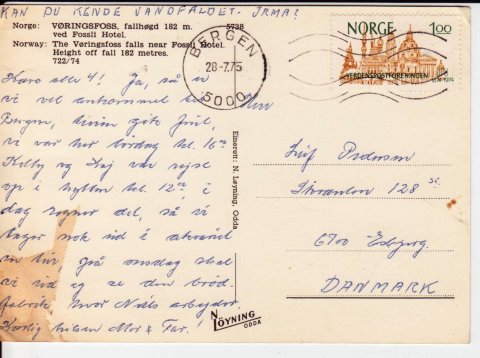 KAN DU KENDE VANDFALDET - IRMA!
Norge: VØRINGSFOSS, fallhøgd 182 m. 5738
ved Fossli Hotel.
Norway: The Vøringsfoss falls near Fossli Hotel.
Height off fall 182 metres.
722/74
BERGEN
28-7.75
5000
NORGE 1,00
VERDENSPOSTFORENINGEN
Kære alle 4! Ja, så er
vi vel ankommet til
Bergen, turen gik fint,
vi var her lørdag kl. 16
Kelly og Kaj var rejst
op i hytten kl. 12, i
dag regner det, så vi
tager nok ud i
en tur, på onsdag skal
vi ud og se den brød-
fabrik hvor Niels arbejder.
Kærlig hilsen Mor & Far!
Enerett: N. Løyning, Odda
N LÖYNING
ODDA
Herr
Leif Pedersen
Storeenlon 128 st.
6700 Esbjerg
DANMARK